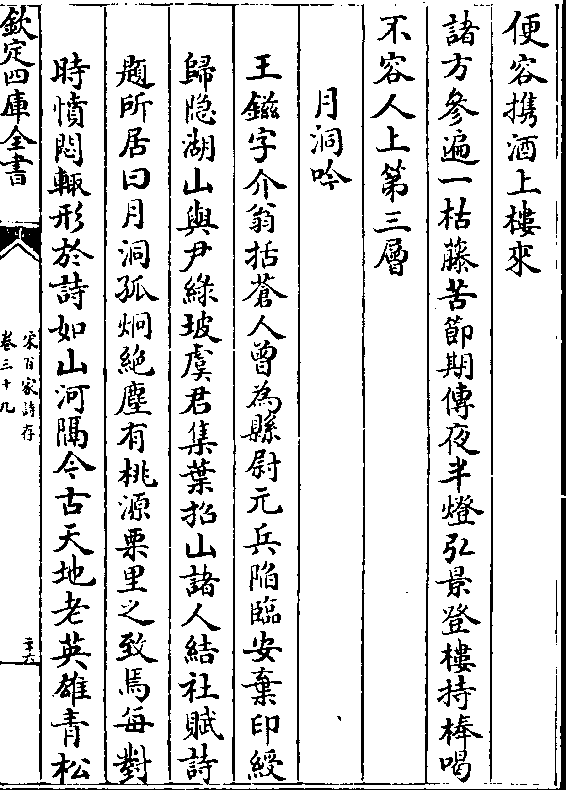 便容攜酒上樓來
諸方參遍一枯藤苦節期傳夜半燈弘景登樓持棒喝
不容人上第三層
月洞吟
王鎡字介翁括蒼人曾為縣尉元兵陷臨安棄印綬
歸隐湖山與尹綠坡虞君集葉招山諸人結社賦詩
題所居曰月洞孤炯絶塵有桃源栗里之致焉每對
時憤悶輙形於詩如山河隔今古天地老英雄青松
欽定四庫全書
宋百家詩存
卷三十九
二十六